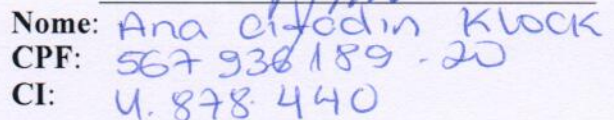 Nome: Ana Citadin Klock
CPF: 567 936 189 - 20
CI: 4. 878. 440